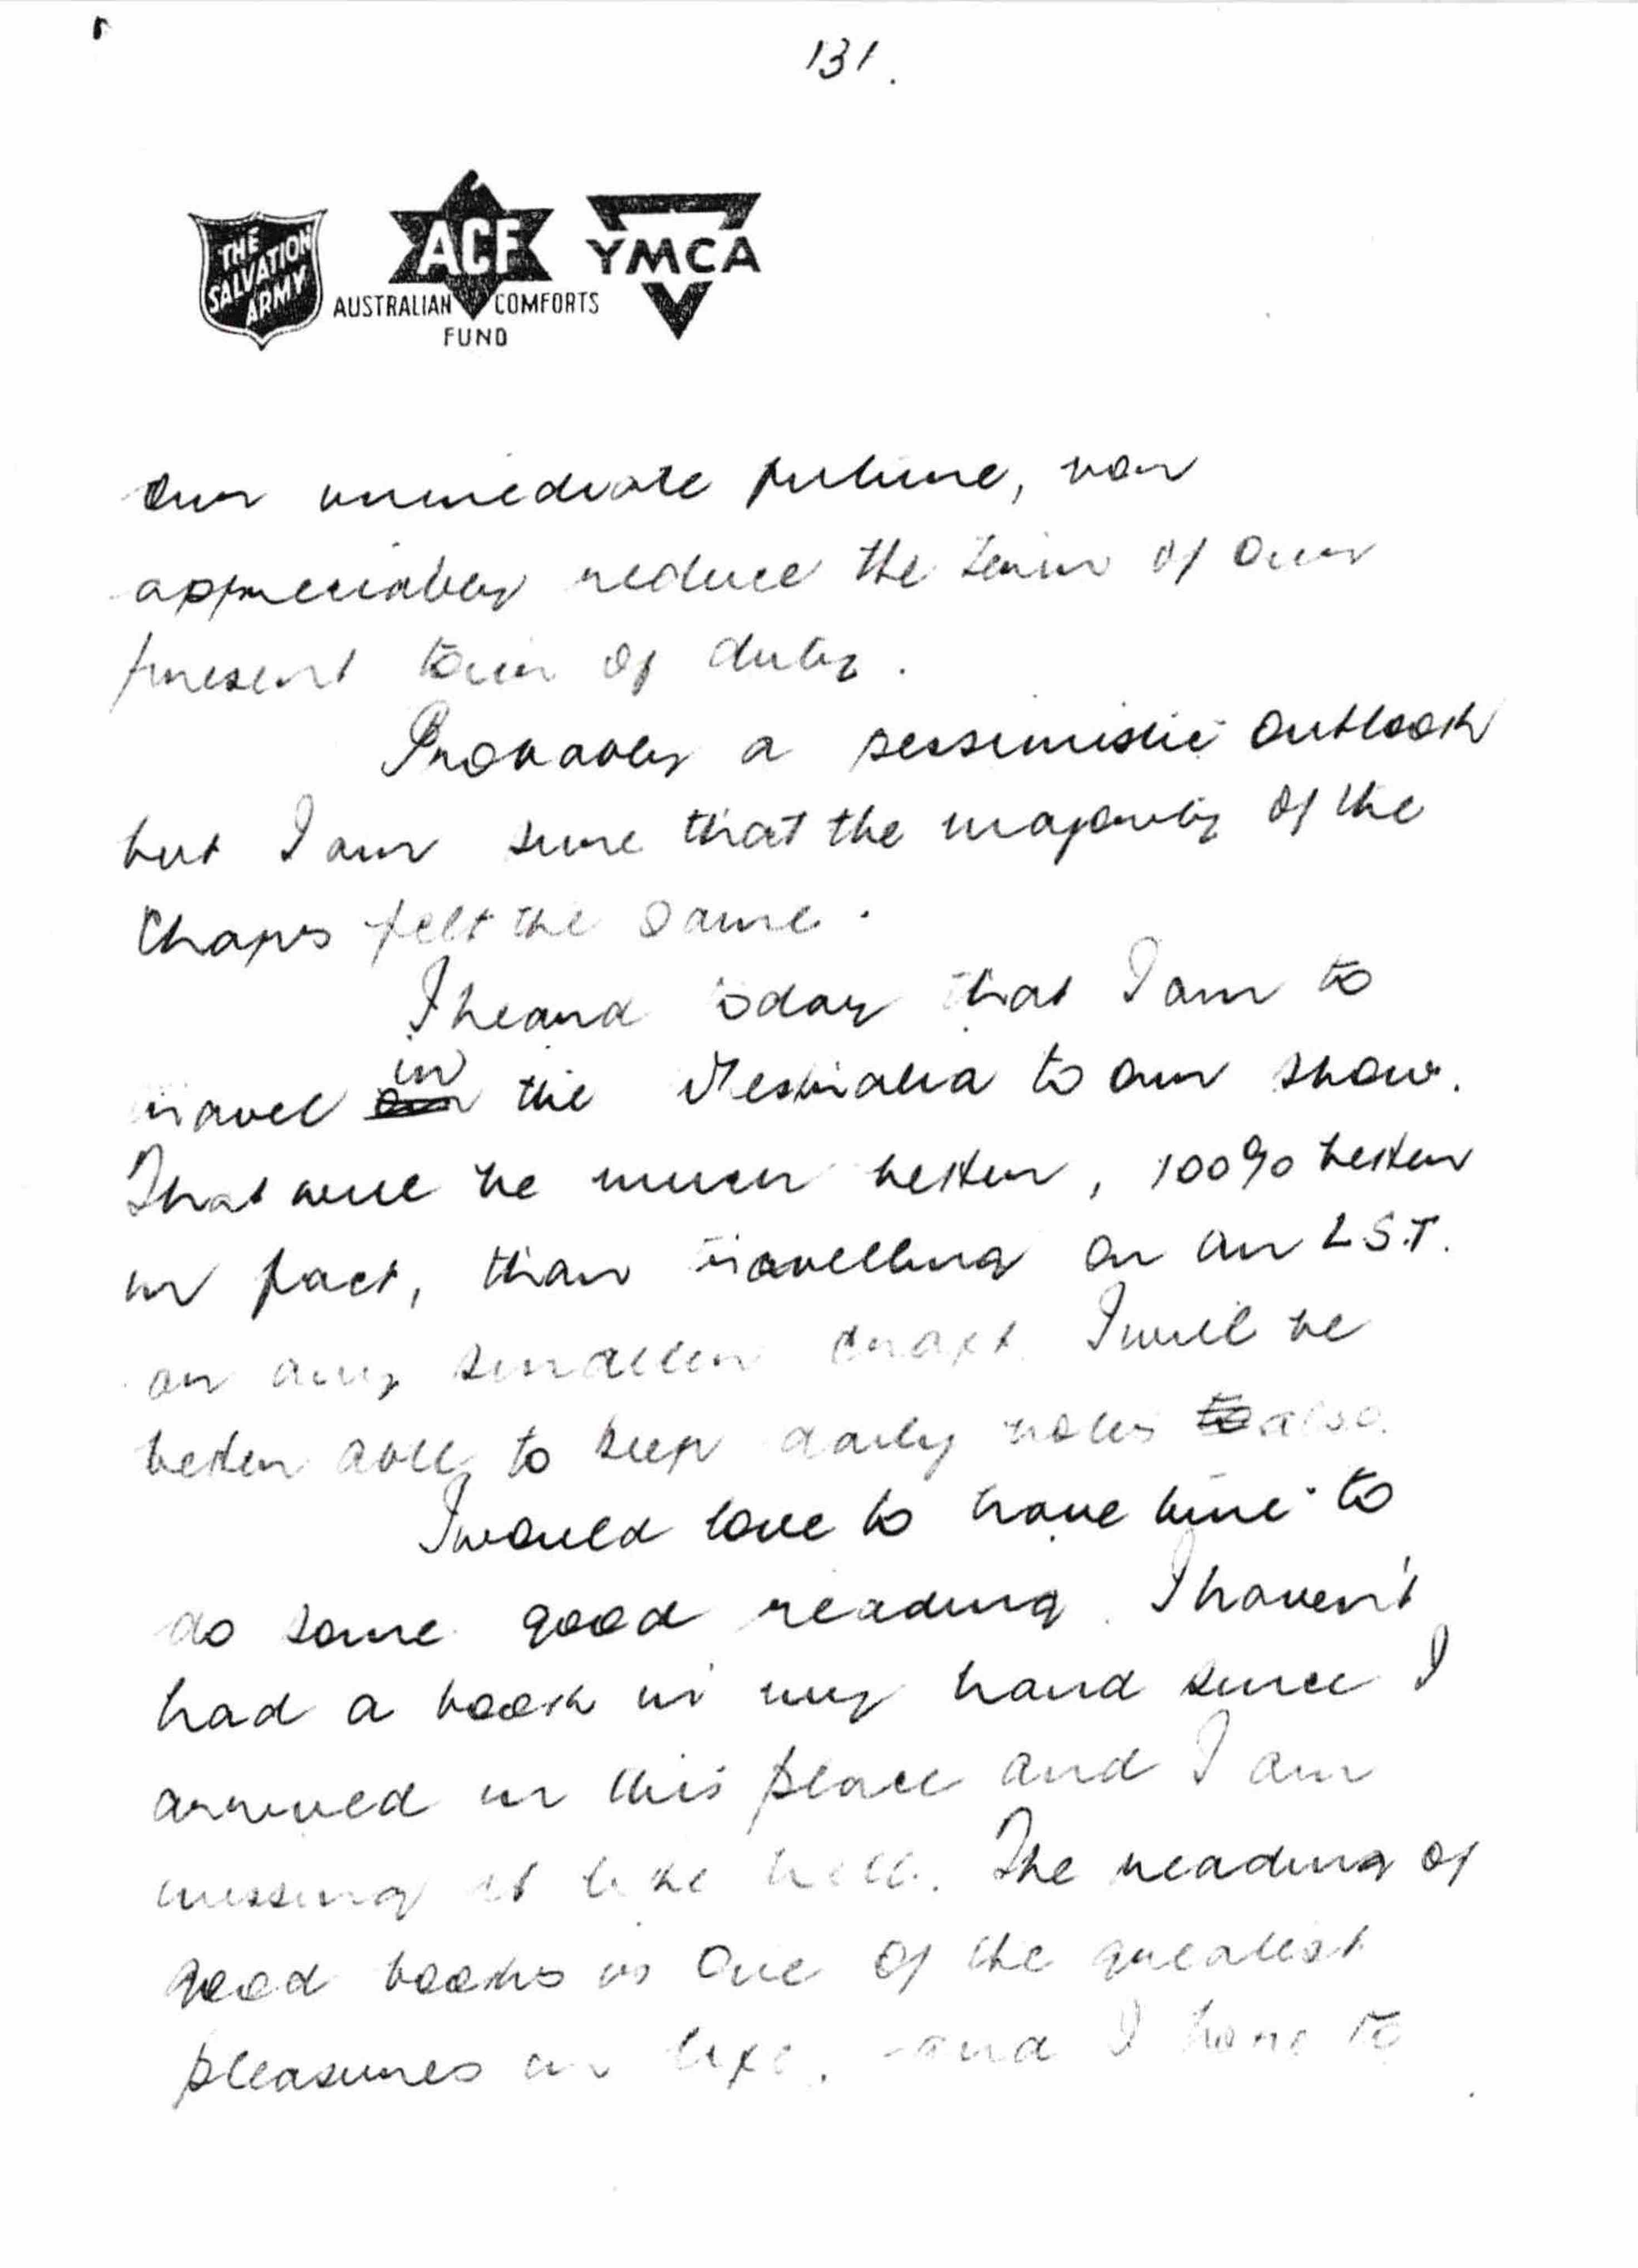 131.
THE SALVATION ARMY
ACF
AUSTRALIAN COMFORTS FUND
YMCA
our immediate future, nor
appreciably reduce the term of our
present tour of duty.
Probably a pessimistic outlook
but I am sure that the majority of the
chaps felt the same.
I heard today that I am to
travel in the Westralia to our show.
That will be much better, 100% better
in fact, than travelling on an L.S.T.
or any smaller craft. I will be
better able to keep daily notes to also.
I would love to have time to
do some good reading. I haven't
had a book in my hand since I
arrived in this place and I am
missing it like hell. The reading of
good books is one of the greatest
pleasures in life, and I hope to